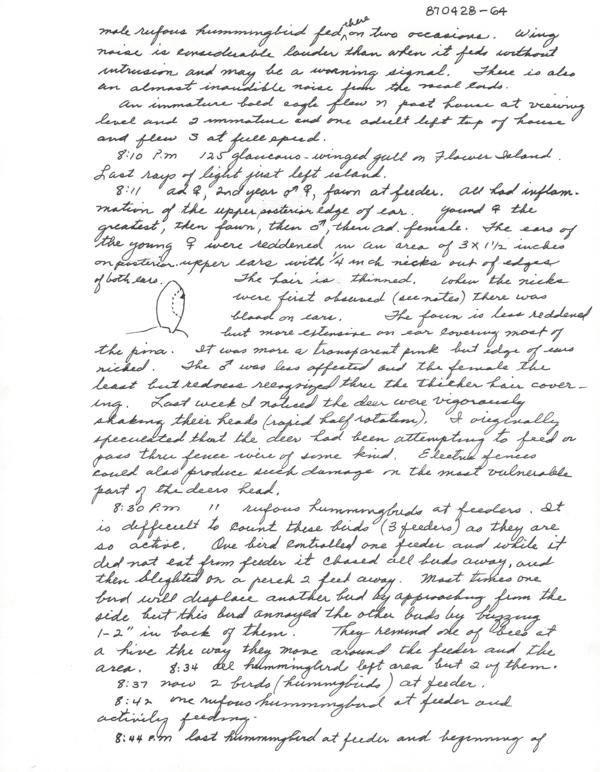 870428-64
male rufous hummingbird fed there on two occasions. Wing
noise is considerable louder than when it feds without
intrusion and may be a warning signal. There is also
an almost inaudible noise from the vocal cords.
An immature bald eagle flew n past house at viewing
level and 2 immature and one adult left top of house
and flew S at full speed.
8:10 P.m 125 glaucous-winged gull on Flower Island.
Last rays of light just left island.
8:11 ad ♀, 2nd year ♂ ♀, fawn at feeder. All had inflam-
mation of the upper posterior edge of ear. Yound ♀ the
greatest, then fawn, then ♂, then ad. female. The ears of
the young ♀ were reddened in an area of 3 x 1 1/2 inches
on posterior upper ears with 1/4 inch nicks out of edges
of both ears. The hair is thinned. When the nicks
were first observed (see notes) there was
blood on ears. The fawn is less reddened
but more extensive on ear covering most of
the pinna. It was more a transparent pink but edge of ears
nicked. The ♂ was less affected and the female the
least but redness recognized thru the thicker hair cover-
ing. Last week I noticed the deer were vigorously
shaking their heads (rapid half rotation). I originally
speculated that the deer had been attempting to feed or
pass thru fence wire of some kind. Electric fences
could also produce such damage on the most vulnerable
part of the deers head.
8:30 P.m. 11 rufous hummingbirds at feeders. It
is difficult to count these birds (3 feeders) as they are
so active. One bird controlled one feeder and while it
did not eat from feeder it chased all birds away, and
then blighted on a perch 2 feet away. Most times one
bird will displace another bird by approaching from the
side but this bird annoyed the other birds by buzzing
1-2" in back of them. They remind one of bees at
a hive the way they move around the feeder and the
area. 8:34 all hummingbird left area but 2 of them.
8:37 now 2 birds (hummingbirds) at feeder.
8:42 one rufous hummmingbird at feeder and
actively feeding.
8:44 P.m last hummingbird at feeder and beginning of